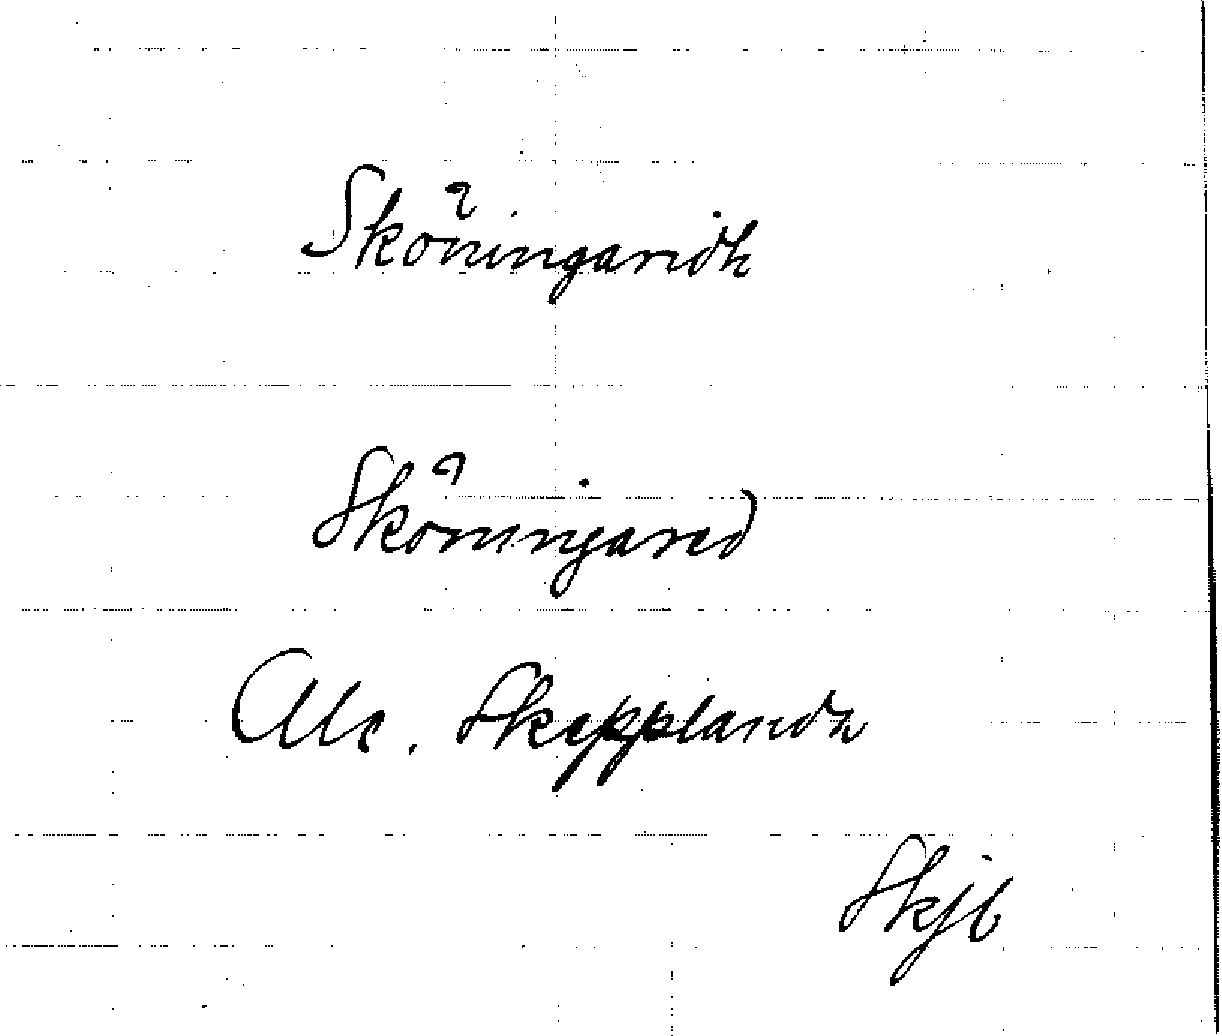 Sköningaridh
Sköningared
Ale. Skepplanda
Skjb